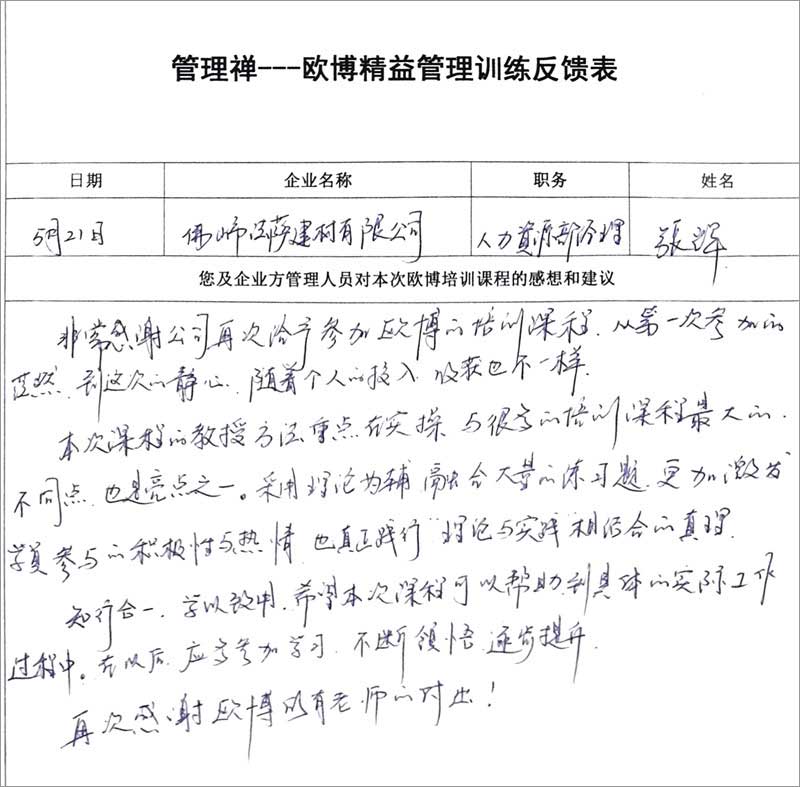 管理禅---欧博精益管理训练反馈表
日期 企业名称 职务 姓名
5月21日 建材有限公司 人力资源部经理 張辉
您及企业方管理人员对本次欧博培训课程的感想和建议
非常感谢公司再次给予参加欧博的培训课程,从第一次参加的
茫然,到这次的静心,随着个人的投入,收获也不一样.
本次课程的教授方法重点在实操,与很多的培训课程最大的
不同点,也是亮点之一。采用理论为辅,融合大量的练习题,更加激发
学员参与的积极性与热情,也真正践行理论与实践相结合的真理.
知行合一,学以致用,希望本次课程可以帮助到具体的实际工作
过程中。在以后,应多参加学习,不断领悟,逐步提升.
再次感谢欧博所有老师的付出!